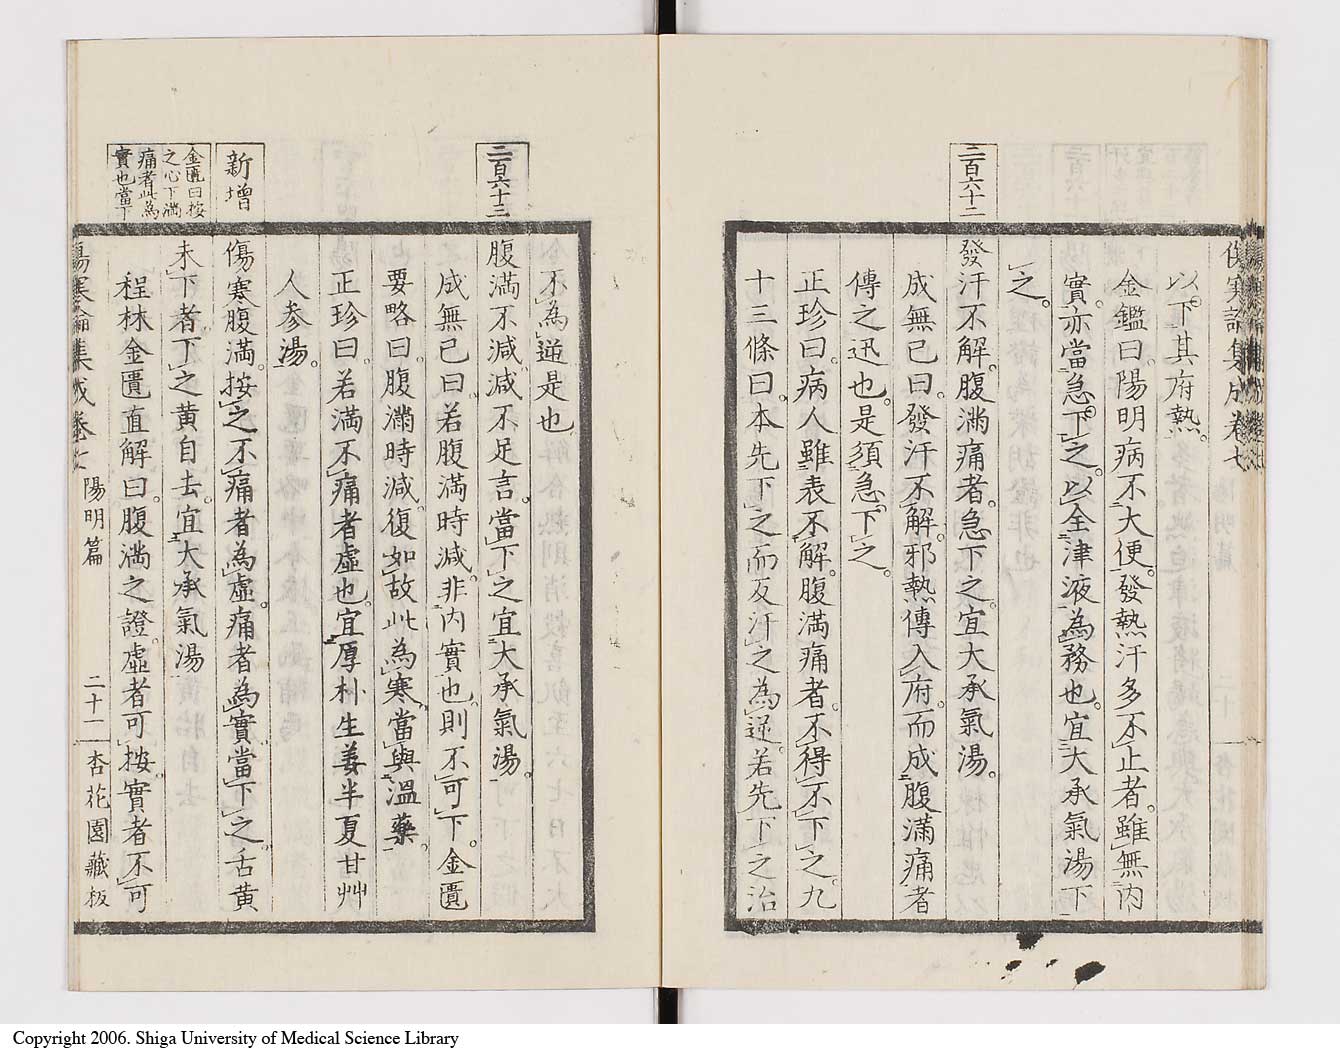 傷寒論集成卷七
以下其府熱。
金鑑曰。陽明病不大便。發熱汗多不止者。雖無內
實。亦當急下之。以全津液為務也。宜大承氣湯下
之。
二百六十二
發汗不解。腹滿痛者。急下之宜大承氣湯。
成無已曰。發汗不解。邪熱傳入府。而成腹滿痛者
傳之迅也。是須急下之。
正珍曰。病人雖表不解。腹滿痛者。不得不下之。九
十三條曰。本先下之而反汗之為逆。若先下之治
不為逆是也
二百六十三
腹滿不減。減不足言。當下之宜大承氣湯。
成無已曰。若腹滿時減。非內實也。則不可下。金匱
要略曰。腹滿時減。復如故此為寒。當與溫藥。
正珍曰。若滿不痛者虛也。宜厚朴生姜半夏甘艸
人參湯。
新增
傷寒腹滿。按之不痛者為虛。痛者為實當下之。舌黃
未下者。下之黃自去。宜大承氣湯
金匱曰按
之心下滿
痛者此為
實也當下
程林金匱直解曰。腹滿之證。虛者可按。實者不可
傷寒論集成卷七 陽明篇 二十一 杏花園藏板
Copyright 2006. Shiga University of Medical Science Library